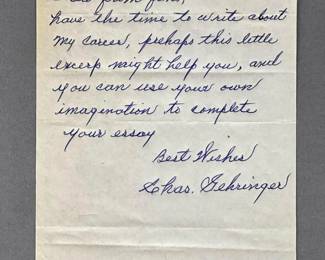 have the time to write about
my career, perhaps this little
excerp might help you, and
you can use your own
imagination to complete
your essay
Best Wishes
Chas. Gehringer